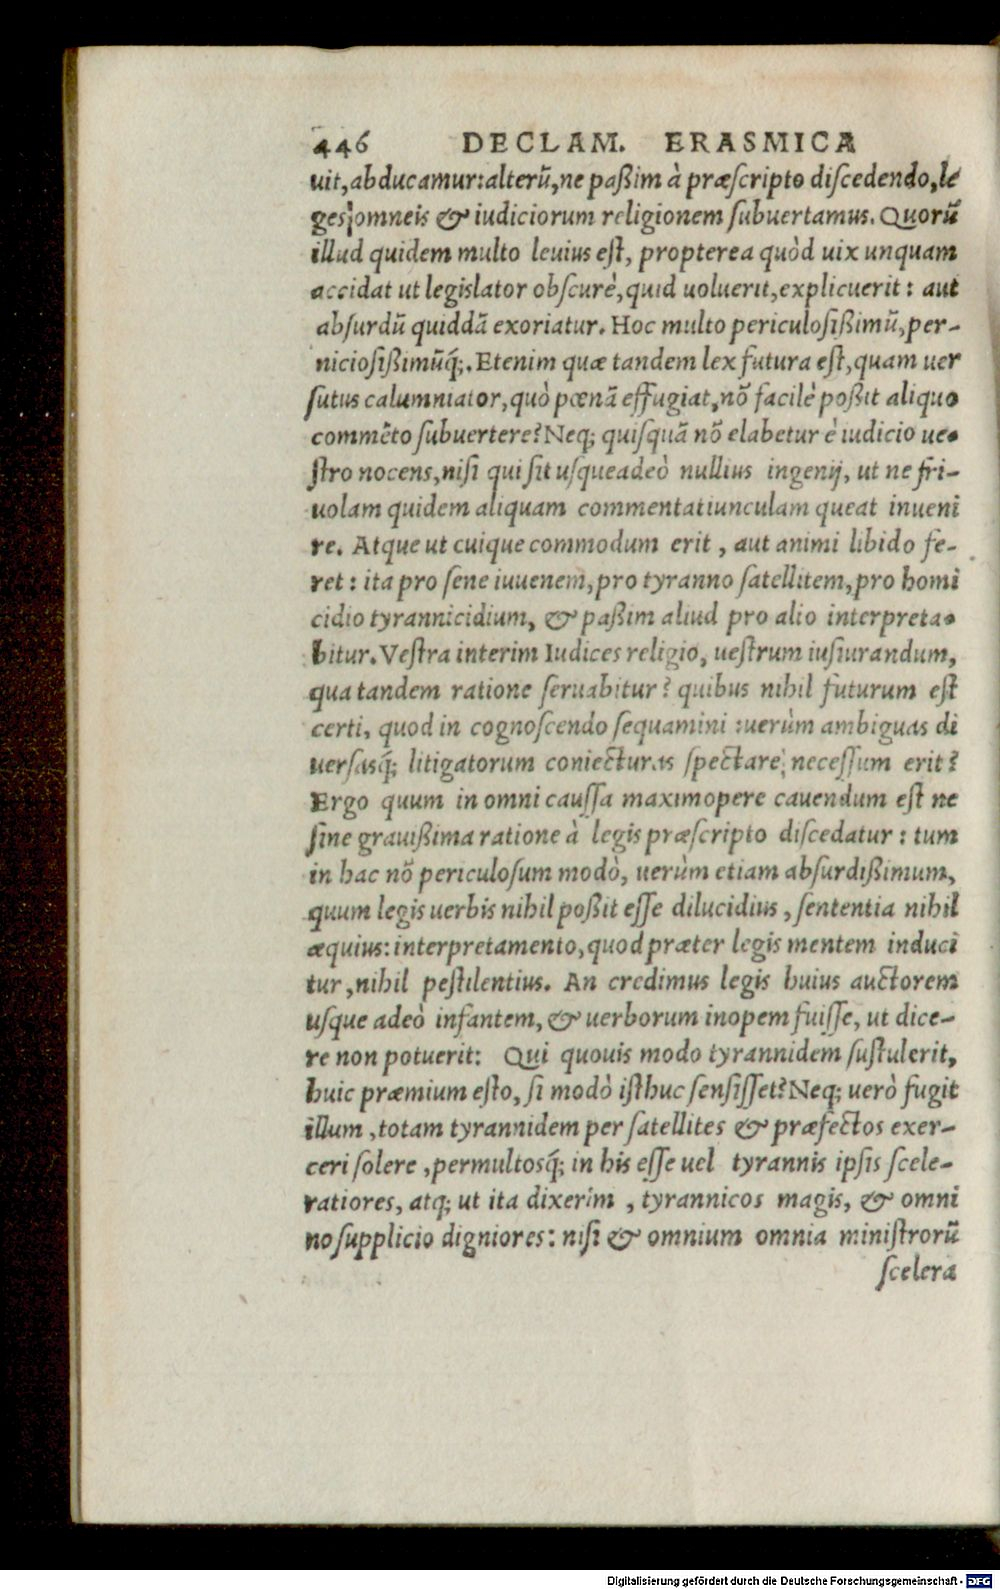 446 DECLAM. ERASMICA
uit, abducamur: alterũ, ne paßim à præſcripto diſcedendo, lē
ges omneis & iudiciorum religionem ſubuertamus. Quorũ
illud quidem multo leuius eſt, propterea quòd uix unquam
accidat ut legislator obſcurè, quid uoluerit, explicuerit: aut
abſurdũ quiddã exoriatur. Hoc multo periculoſißimũ, per-
nicioſißimũq́;. Etenim quæ tandem lex futura eſt, quam uer
ſutus calumniator, quò pœnã effugiat, nõ facilè poßit aliquo
commẽto ſubuertere? Neq; quiſquã nõ elabetur è iudicio ue-
ſtro nocens, niſi qui ſit uſqueadeò nullius ingenij, ut ne fri-
uolam quidem aliquam commentatiunculam queat inueni
re. Atque ut cuique commodum erit, aut animi libido fe-
ret: ita pro ſene iuuenem, pro tyranno ſatellitem, pro homi
cidio tyrannicidium, & paßim aliud pro alio interpreta-
bitur. Veſtra interim Iudices religio, ueſtrum iuſiurandum,
qua tandem ratione ſeruabitur? quibus nihil futurum eſt
certi, quod in cognoſcendo ſequamini: uerùm ambiguas di
uerſasq́; litigatorum coniecturas ſpectare, neceſſum erit?
Ergo quum in omni cauſſa maximopere cauendum eſt ne
ſine grauißima ratione à legis præſcripto diſcedatur: tum
in hac nõ periculoſum modò, uerùm etiam abſurdißimum,
quum legis uerbis nihil poßit eſſe dilucidius, ſententia nihil
æquius: interpretamento, quod præter legis mentem induci
tur, nihil peſtilentius. An credimus legis huius auctorem
uſque adeò infantem, & uerborum inopem fuiſſe, ut dice-
re non potuerit: Qui quouis modo tyrannidem ſuſtulerit,
huic præmium eſto, ſi modò iſthuc ſenſiſſet? Neq; uerò fugit
illum, totam tyrannidem per ſatellites & præfectos exer-
ceri ſolere, permultosq́; in his eſſe uel tyrannis ipſis ſcele-
ratiores, atq; ut ita dixerim, tyrannicos magis, & omni
no ſupplicio digniores: niſi & omnium omnia miniſtrorũ
ſcelera
Digitalisierung gefördert durch die Deutsche Forschungsgemeinschaft - DFG